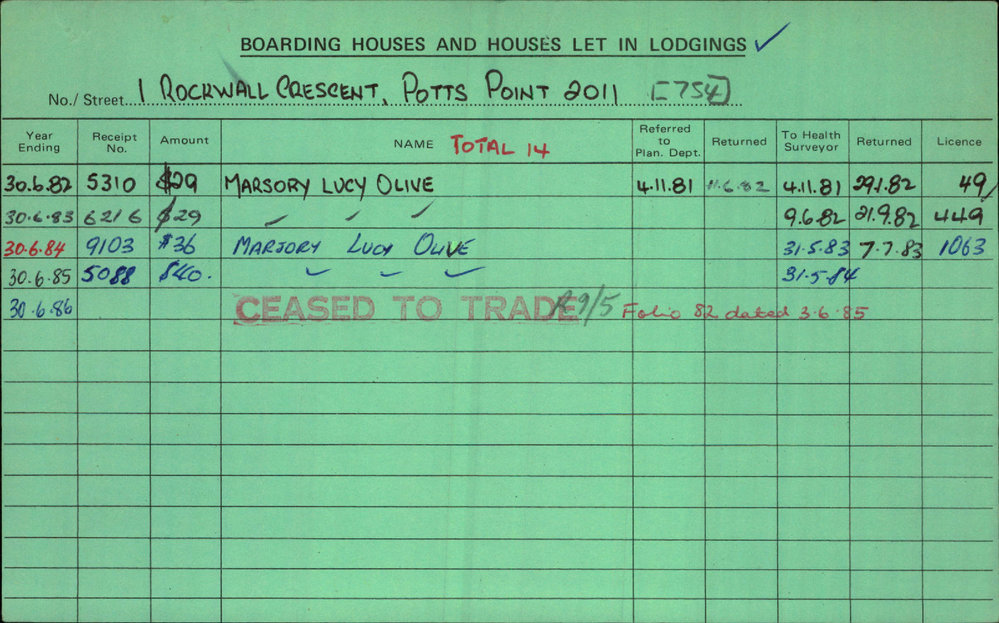 BOARDING HOUSES AND HOUSES LET IN LODGINGS ✓
No./ Street 1 ROCKWALL CRESCENT, POTTS POINT 2011 [754]
Year Ending Receipt No. Amount NAME TOTAL 14 Referred to Plan. Dept. Returned To Health Surveyor Returned Licence
30.6.82 5310 $29 MARSORY LUCY OLIVE 4.11.81 11.6.82 4.11.81 29.1.82 49/
30.6.83 6216 $29 ✓ ✓ ✓ 9.6.82 21.9.82 449
30.6.84 9103 $36 MARJORY LUCY OLIVE 31.5.83 7.7.83 1063
30.6.85 5088 $40. ✓ ✓ ✓ 31.5.84
30.6.86 CEASED TO TRADE 9/5 Folio 82 dated 3.6.85